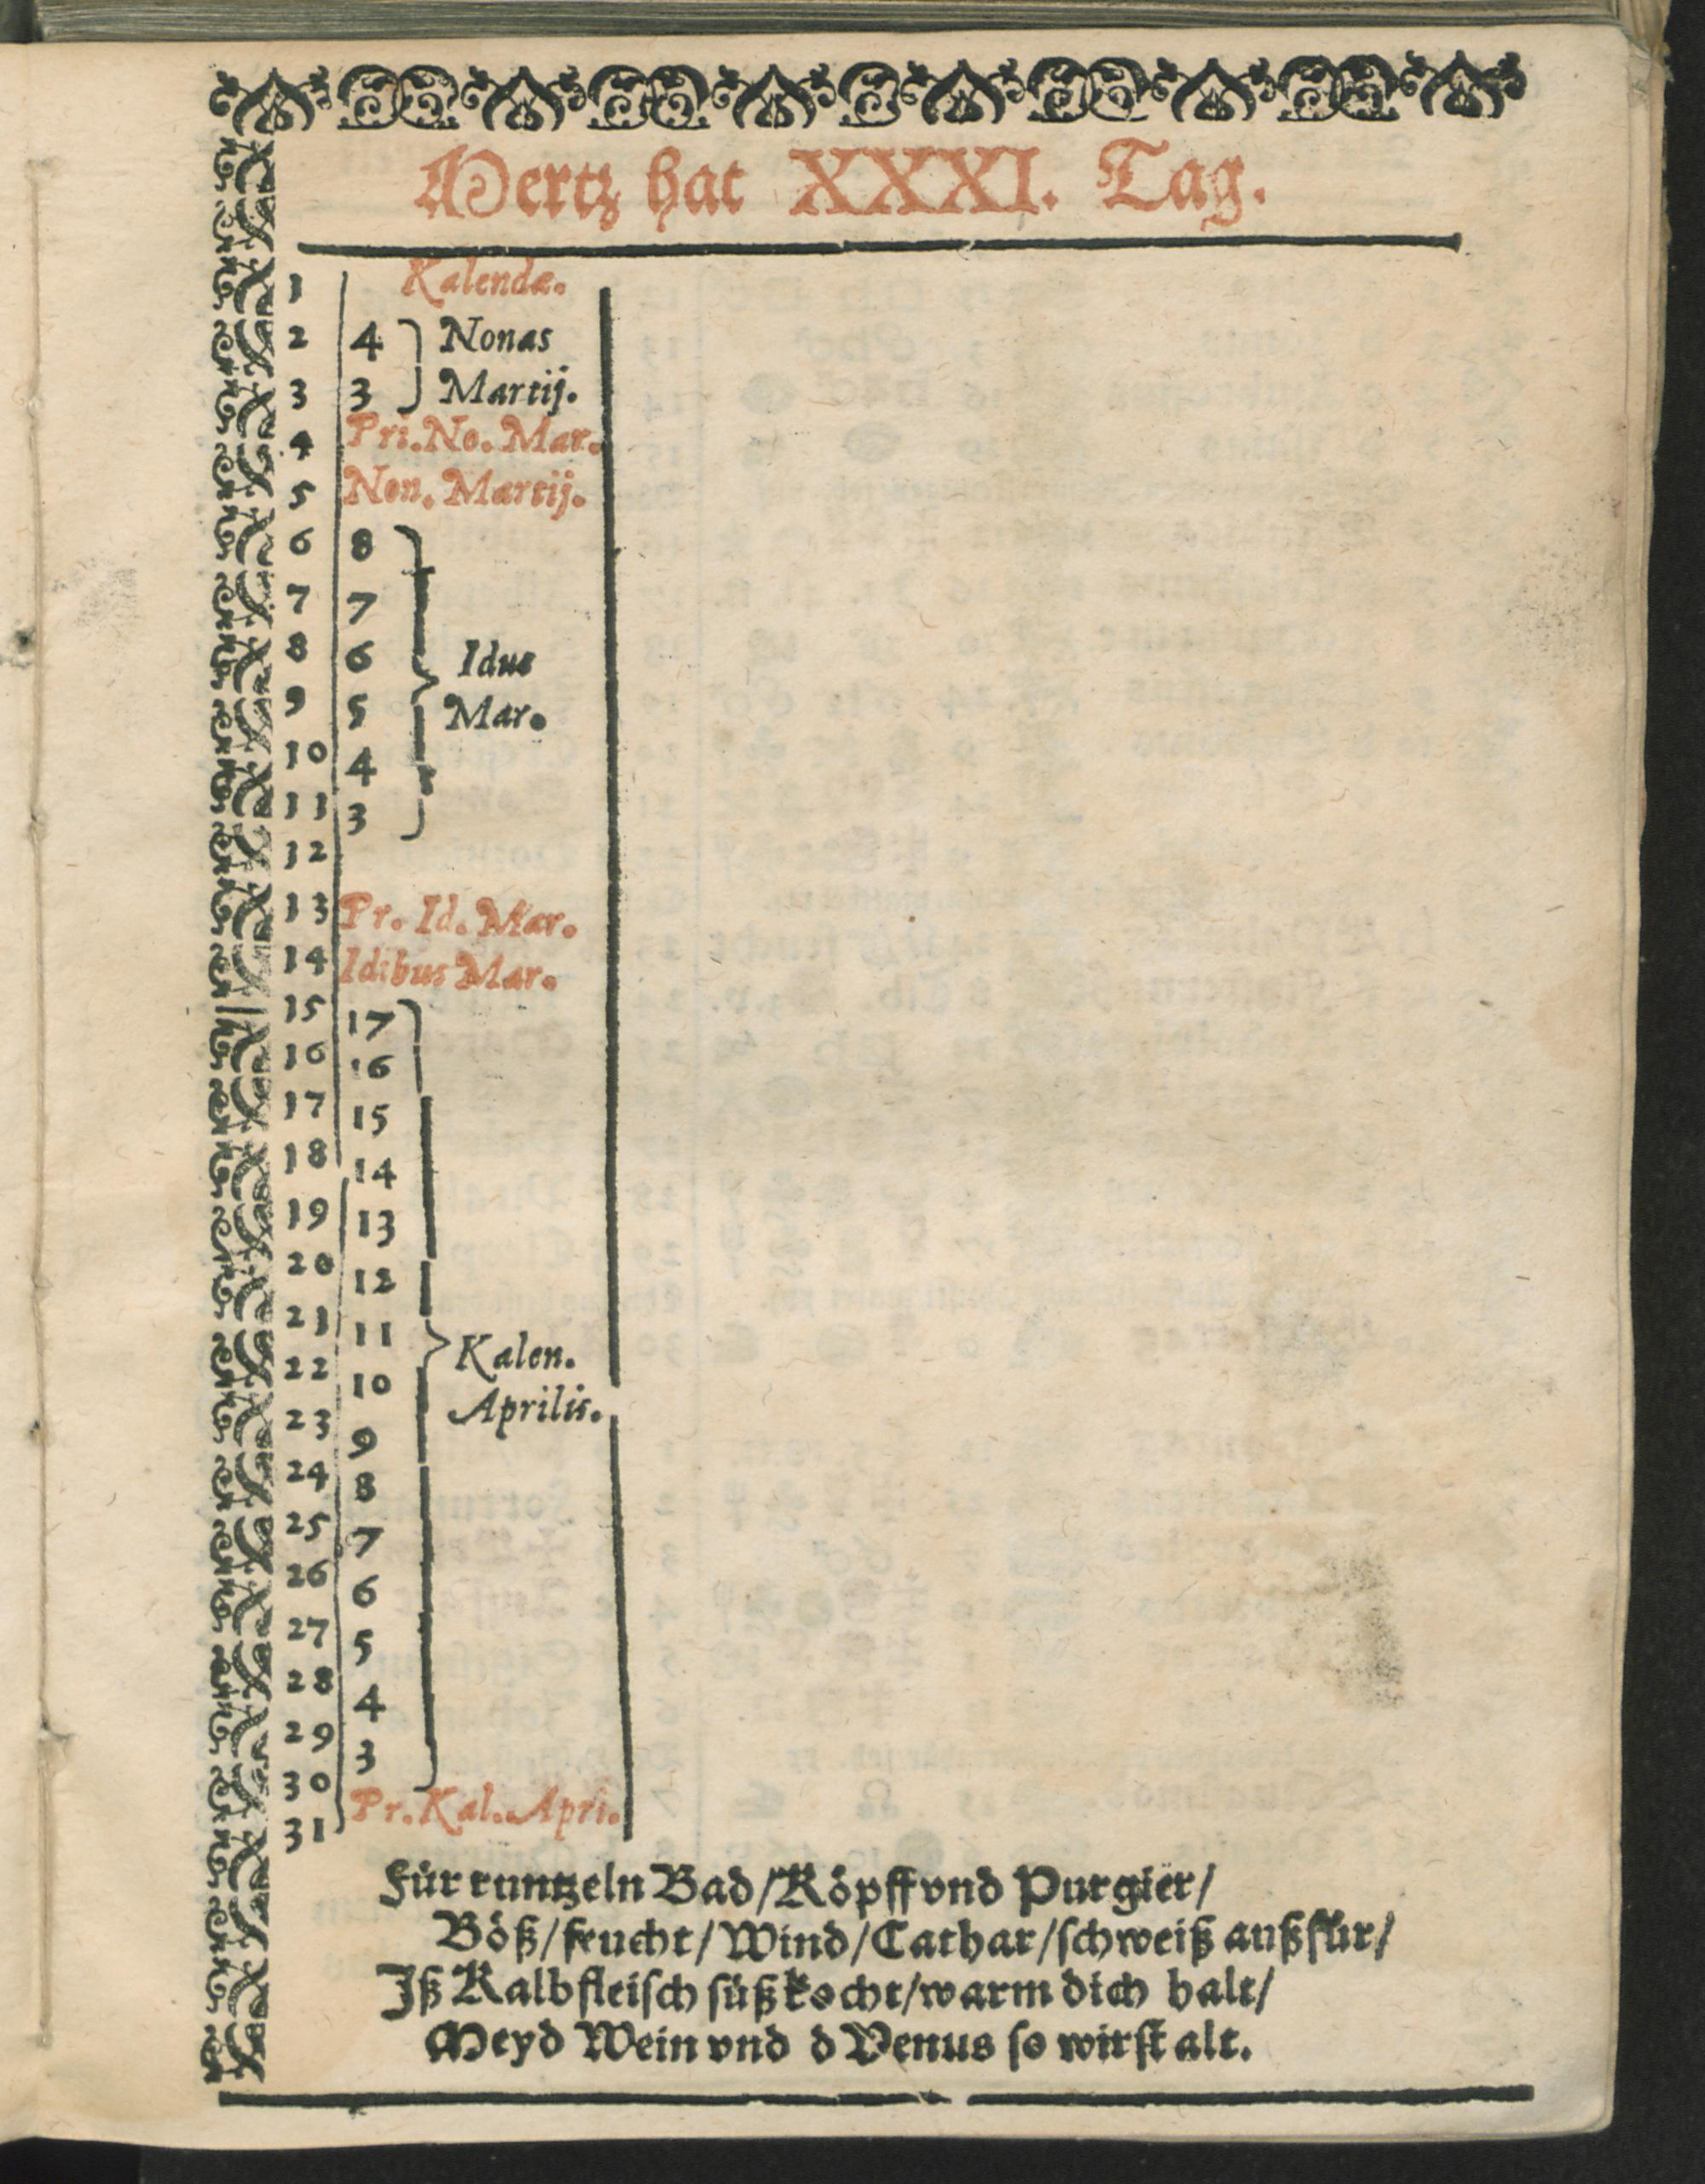 Mertz hat XXXI. Tag.
1 Kalendæ.
2 4 Nonas
3 3 Martij.
4 Pri. No. Mar.
5 Non. Martij.
6 8
7 7
8 6 Idus
9 5 Mar.
10 4
11 3
12
13 Pr. Id. Mar.
14 Idibus Mar.
15 17
16 16
17 15
18 14
19 13
20 12
21 11 Kalen.
22 10 Aprilis.
23 9
24 8
25 7
26 6
27 5
28 4
29 3
30 Pr. Kal. Apri.
31
Für runtzeln Bad/Köpff vnd Purgier/
Böß/feucht/Wind/Cathar/schweiß außfür/
Iß Kalbfleisch süß kocht/warm dich halt/
Meyd Wein vnd d Venus so wirst alt.